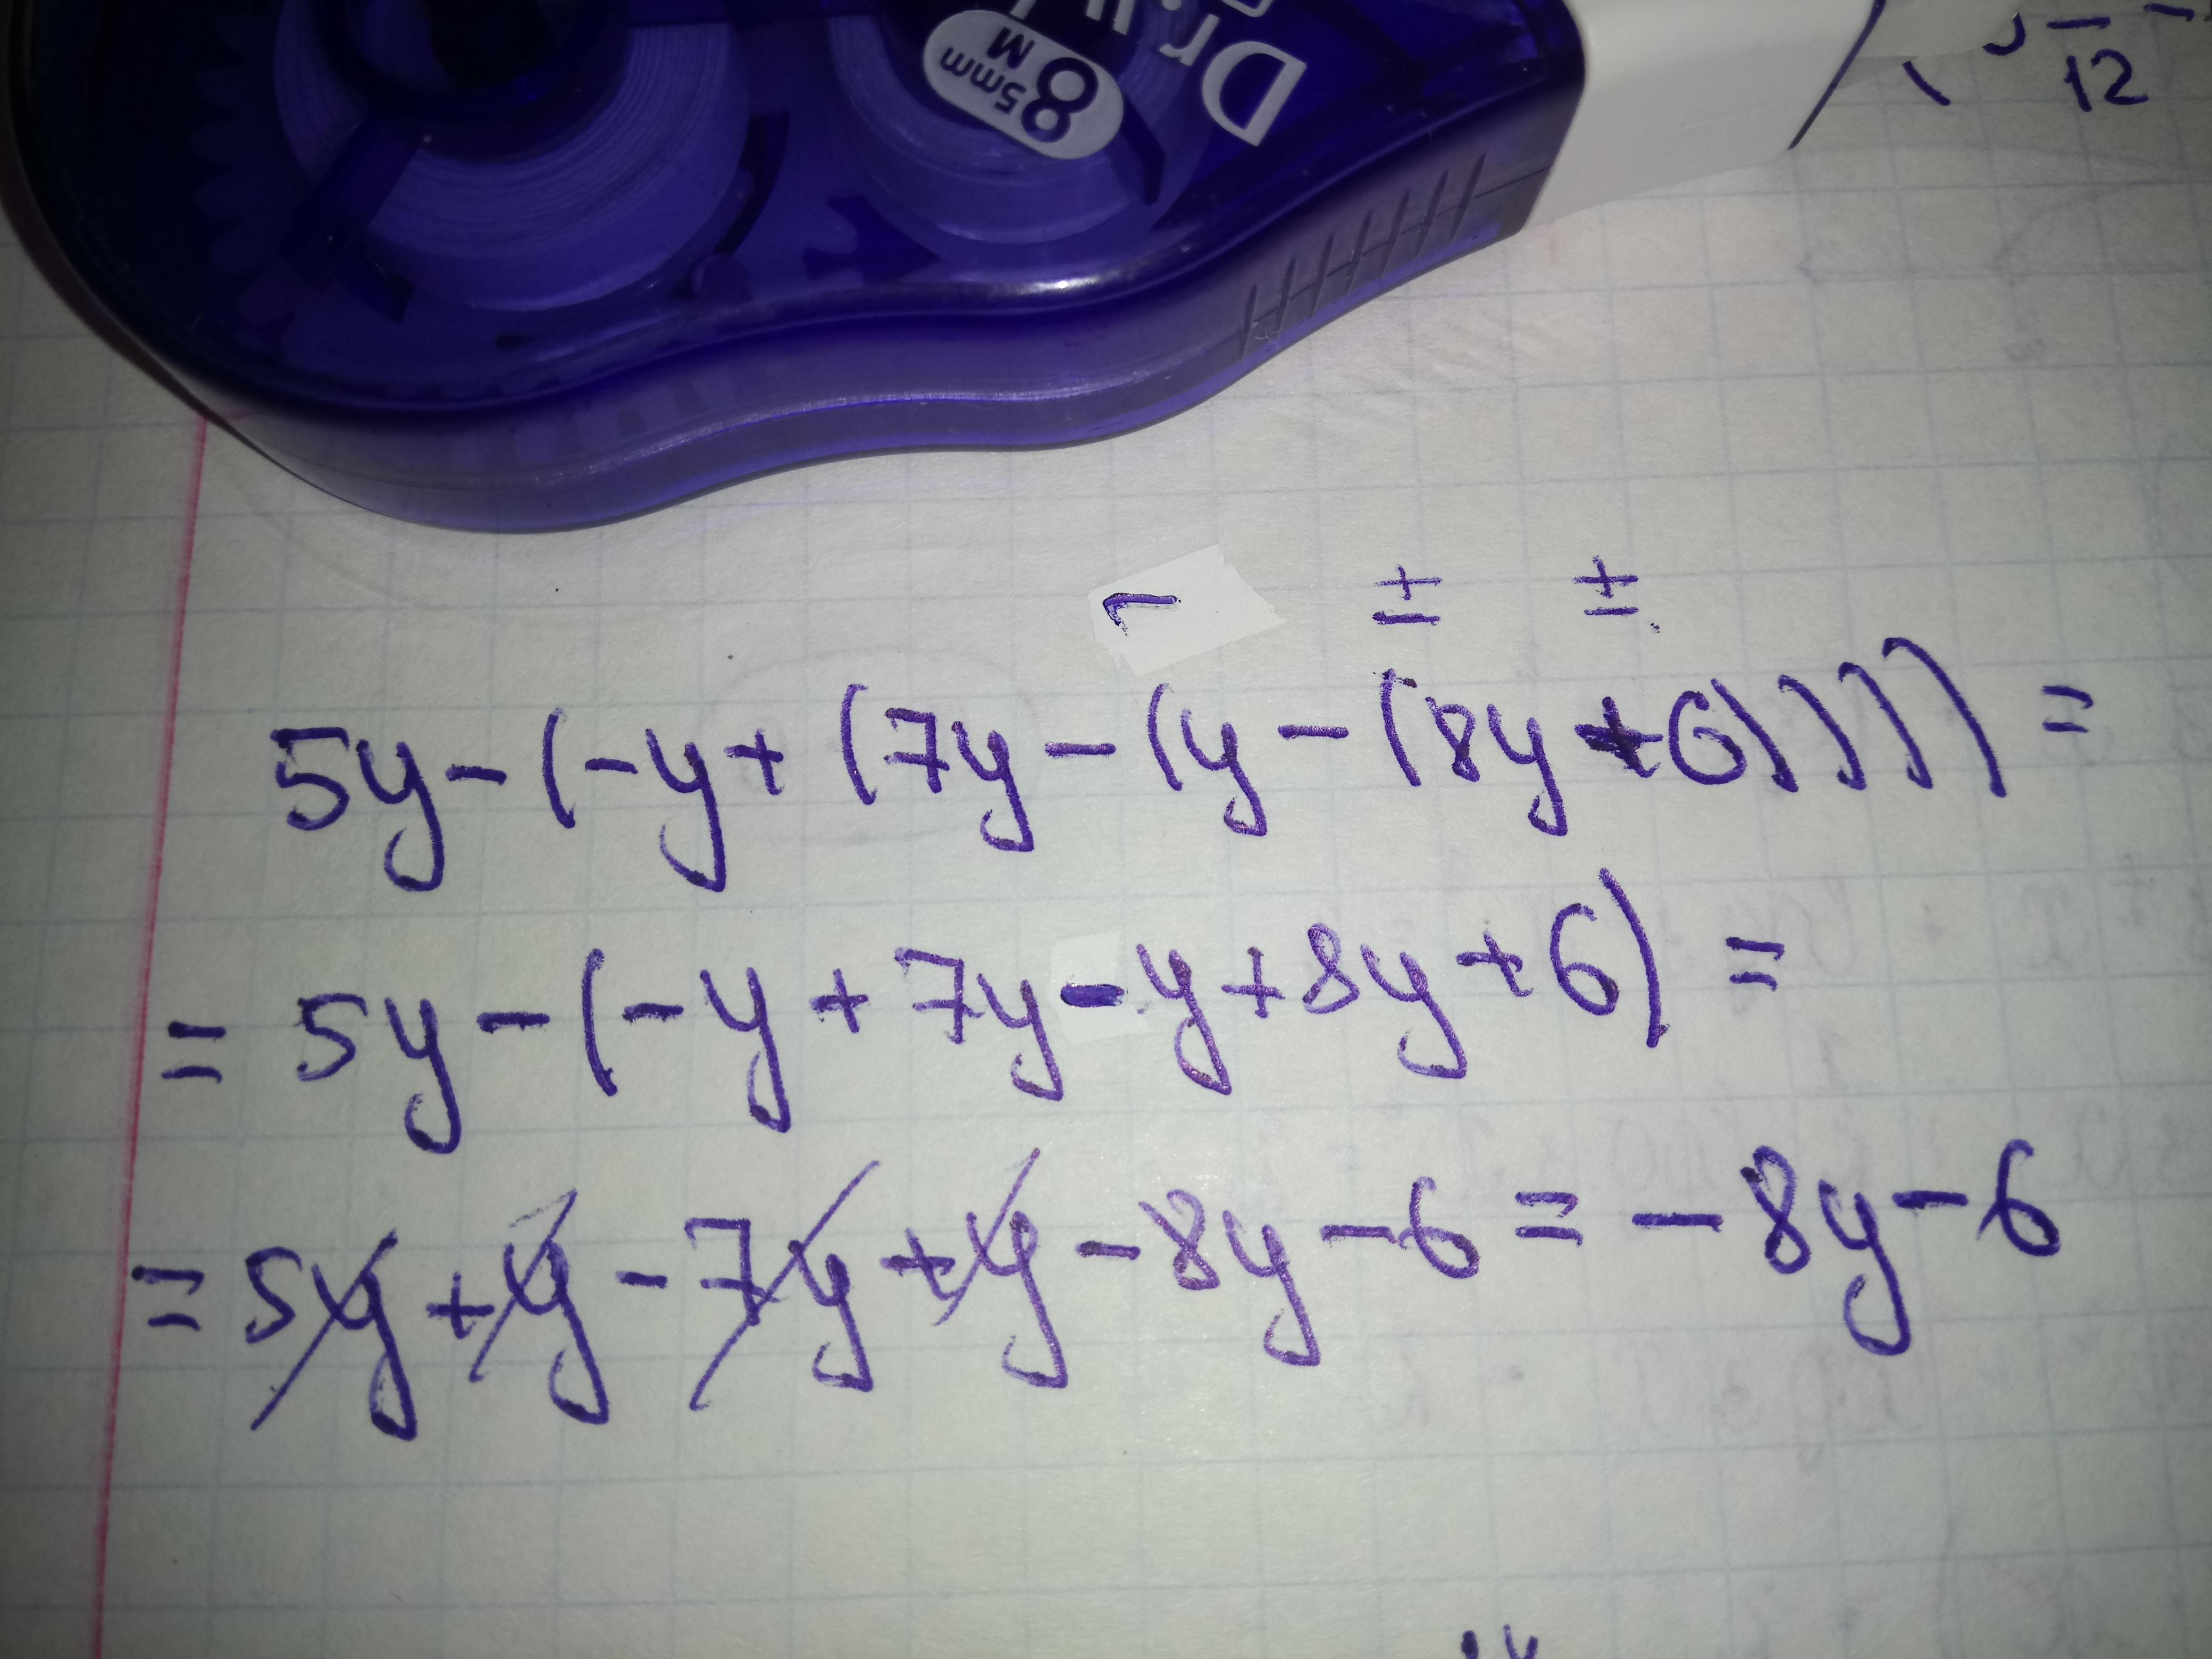 Dr.
8M
5mm
12
− ± ±
5y-(-y+(7y-(y-(8y+6))))=
=5y-(-y+7y-y+8y+6)=
=5y+y-7y+y-8y-6=-8y-6